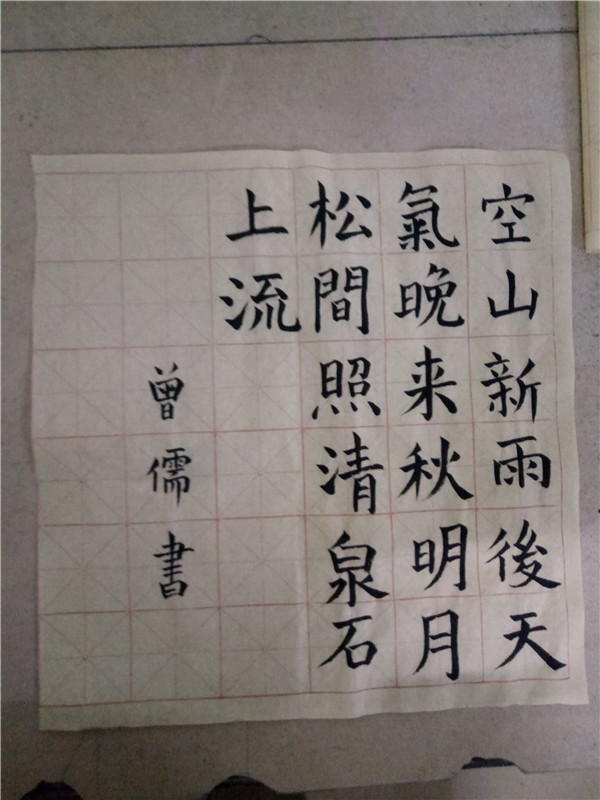 空山新雨後天
氣晚来秋明月
松間照清泉石
上流
曾儒書